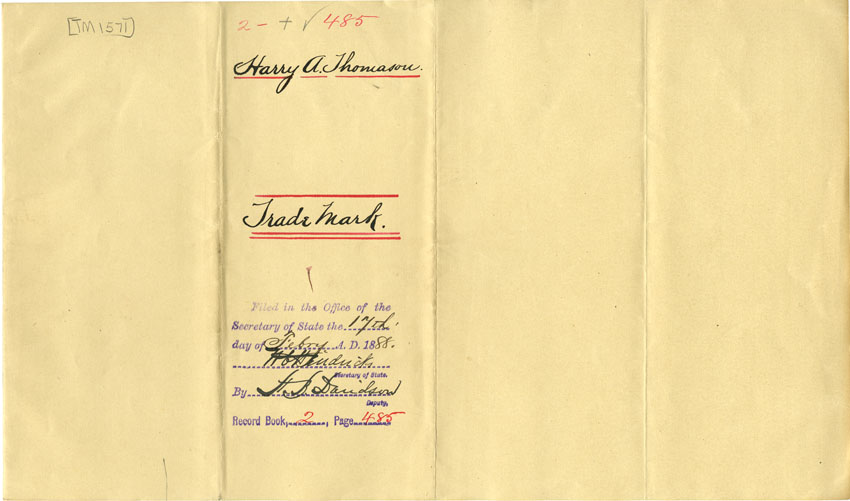 [TM1571]
2 - + ✓ 485
Harry A. Thomason.
Trade Mark.
Filed in the Office of the
Secretary of State the 17th
day of Febry A. D. 1888.
Hendricks
Secretary of State.
By Davidson
Deputy.
Record Book, 2, Page 485